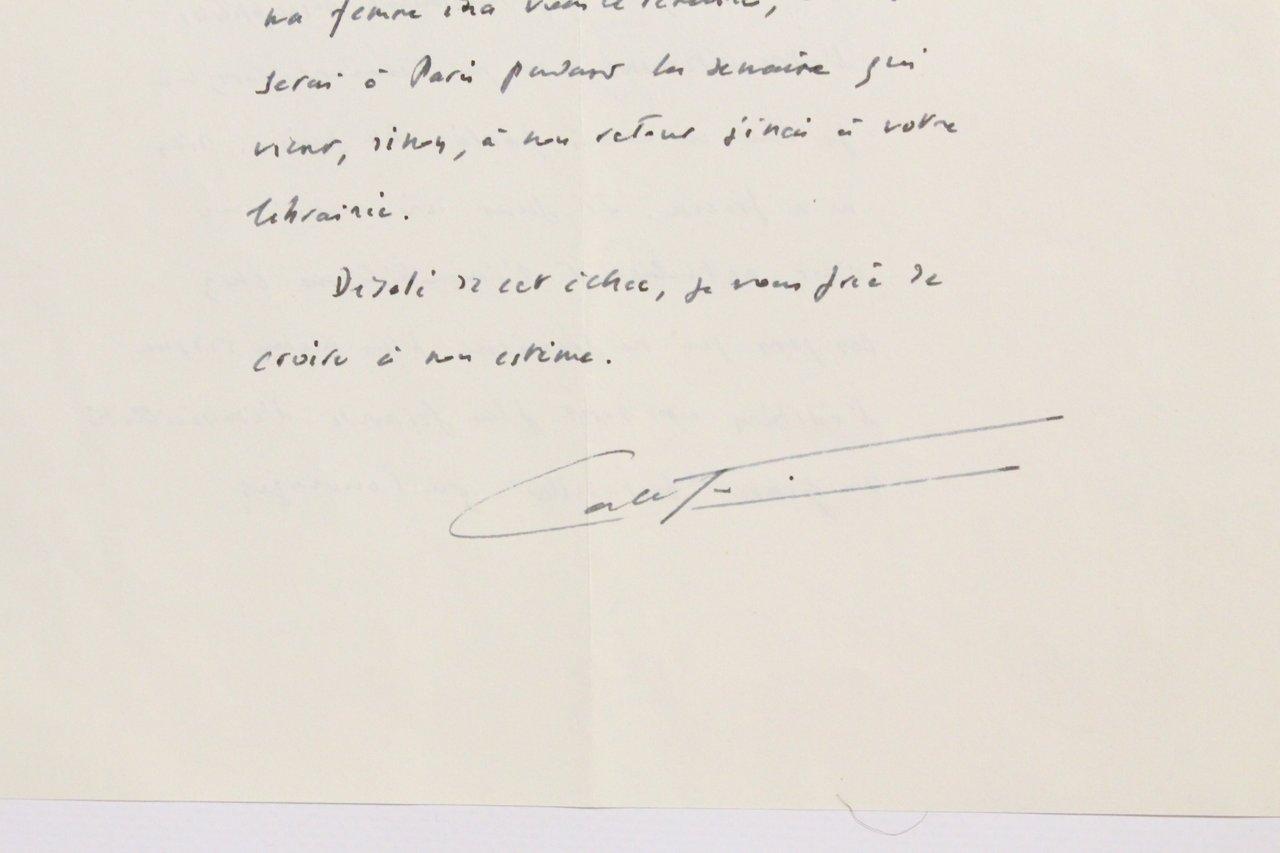 ma femme ira vous le rendre,
serai à Paris pendant la semaine qui
vient, sinon, à mon retour j'irai à votre
librairie.
Désolé de cet échec, je vous prie de
croire à mon estime.